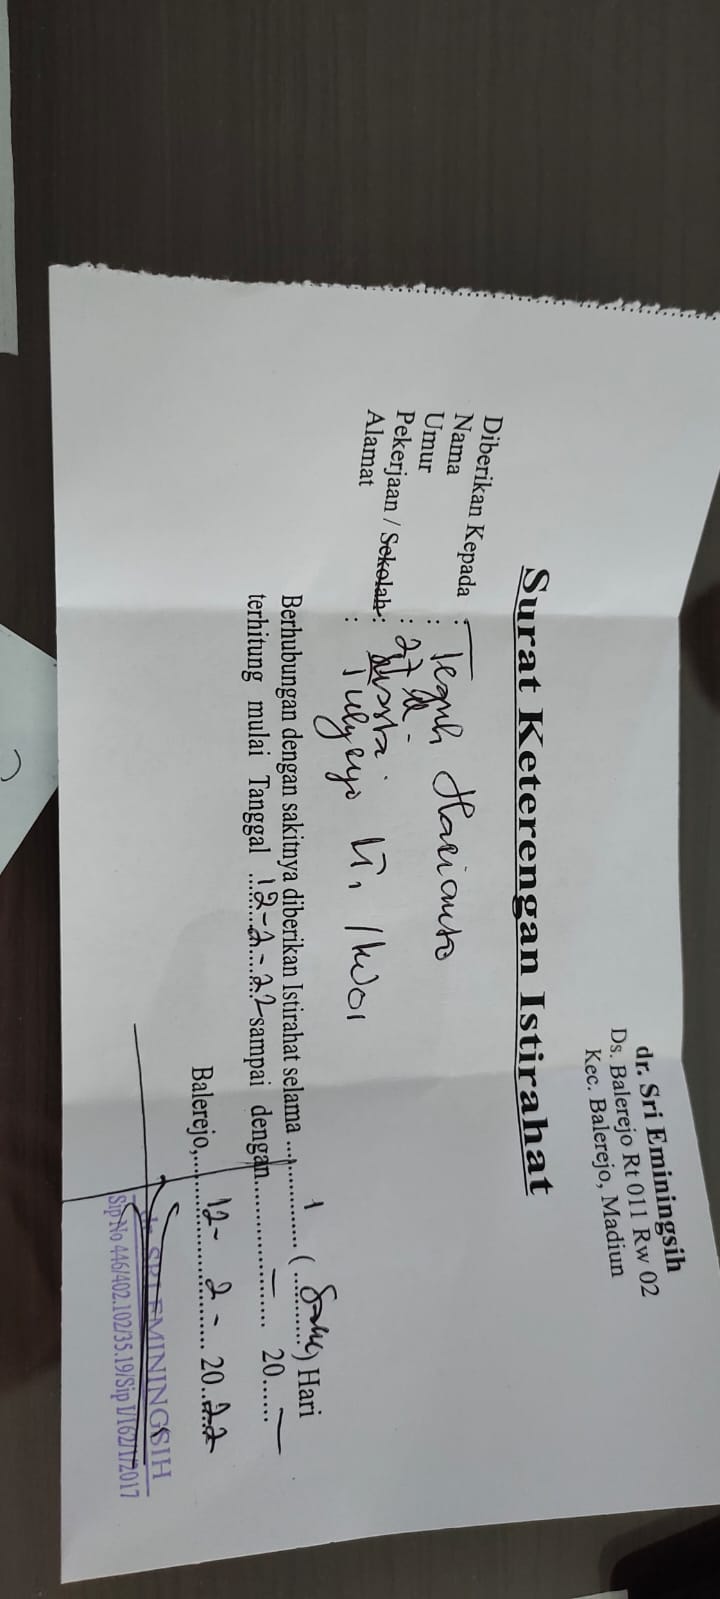 dr. Sri Eminingsih
Ds. Balerejo Rt 011 Rw 02
Kec. Balerejo, Madiun
Surat Keterengan Istirahat
Diberikan Kepada :
Nama : Teguh Harianto
Umur : 27 th -
Pekerjaan / Sekolah : Swasta.
Alamat : /RW01
Berhubungan dengan sakitnya diberikan Istirahat selama .... 1 .... (Satu) Hari
terhitung mulai Tanggal 12-2-22 sampai dengan.......... — ...... 20...... —
Balerejo, 12- 2 - 20 22
dr. SRI EMININGSIH
Sip No 446/402.102/35.19/Sip I/162/1/2017